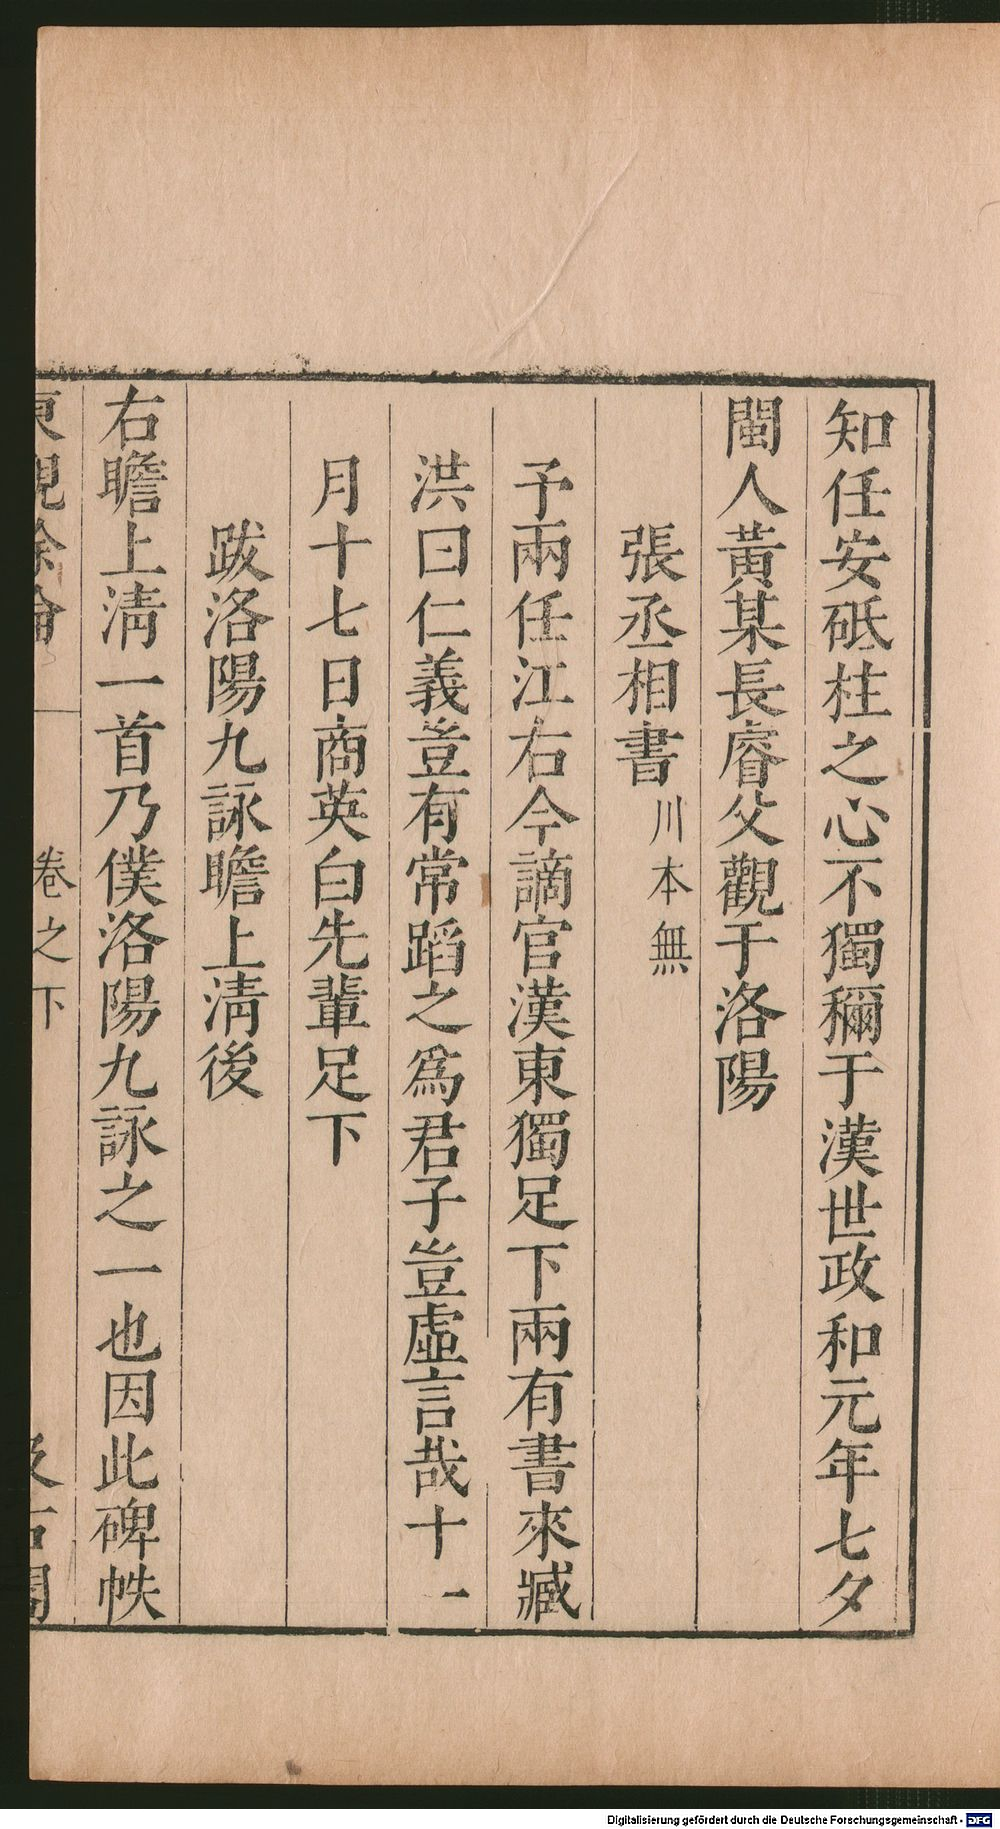 知任安砥柱之心不獨穪于漢世政和元年七夕
閩人黃某長睿父觀于洛陽
張丞相書川本無
予兩任江右今謫官漢東獨足下兩有書來臧
洪曰仁義豈有常蹈之爲君子豈虛言哉十一
月十七日商英白先輩足下
跋洛陽九詠瞻上淸後
右瞻上淸一首乃僕洛陽九詠之一也因此碑帙
東觀餘論 卷之下 汲古閣
Digitalisierung gefördert durch die Deutsche Forschungsgemeinschaft - DFG